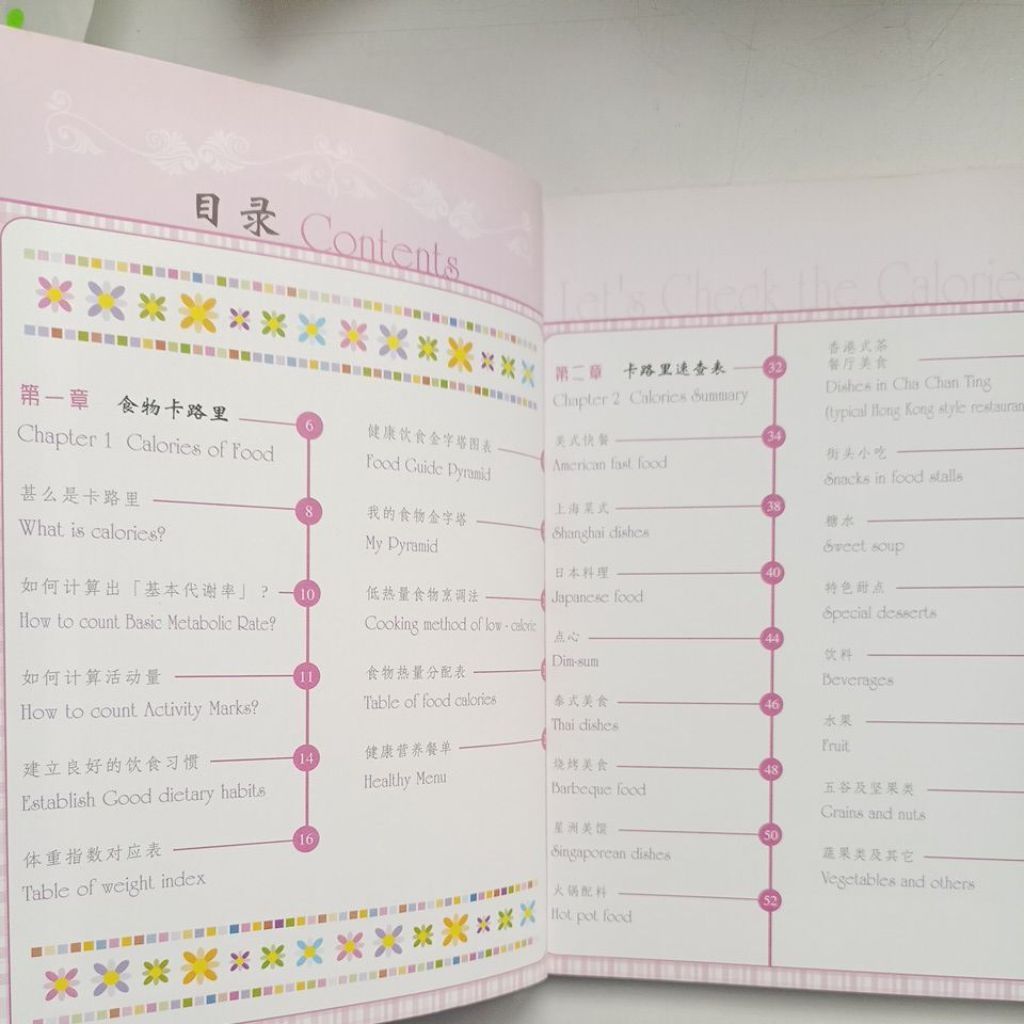 目录 Contents
第一章 食物卡路里 6
Chapter 1 Calories of Food
甚么是卡路里 8
What is calories?
如何计算出「基本代谢率」? 10
How to count Basic Metabolic Rate?
如何计算活动量 11
How to count Activity Marks?
建立良好的饮食习惯 14
Establish Good dietary habits
体重指数对应表 16
Table of weight index
健康饮食金字塔图表
Food Guide Pyramid
我的食物金字塔
My Pyramid
低热量食物烹调法
Cooking method of low-calorie
食物热量分配表
Table of food calories
健康营养餐单
Healthy Menu
Let's Check the Calorie
第二章 卡路里速查表 32
Chapter 2 Calories Summary
美式快餐 34
American fast food
上海菜式 38
Shanghai dishes
日本料理 40
Japanese food
点心 44
Dim-sum
泰式美食 46
Thai dishes
烧烤美食 48
Barbeque food
星洲美馔 50
Singaporean dishes
火锅配料 52
Hot pot food
香港式茶
餐厅美食
Dishes in Cha Chan Ting
(typical Hong Kong style restauran
街头小吃
Snacks in food stalls
糖水
Sweet soup
特色甜点
Special desserts
饮料
Beverages
水果
Fruit
五谷及坚果类
Grains and nuts
蔬果类及其它
Vegetables and others